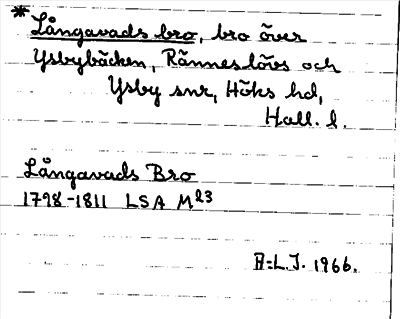 * Långavads bro, bro över
Ysbybäcken, Ränneslövs och
Ysby snr, Höks hd,
Hall. l.
Långavads Bro
1798-1811 LSA M23
B:L.J. 1966.